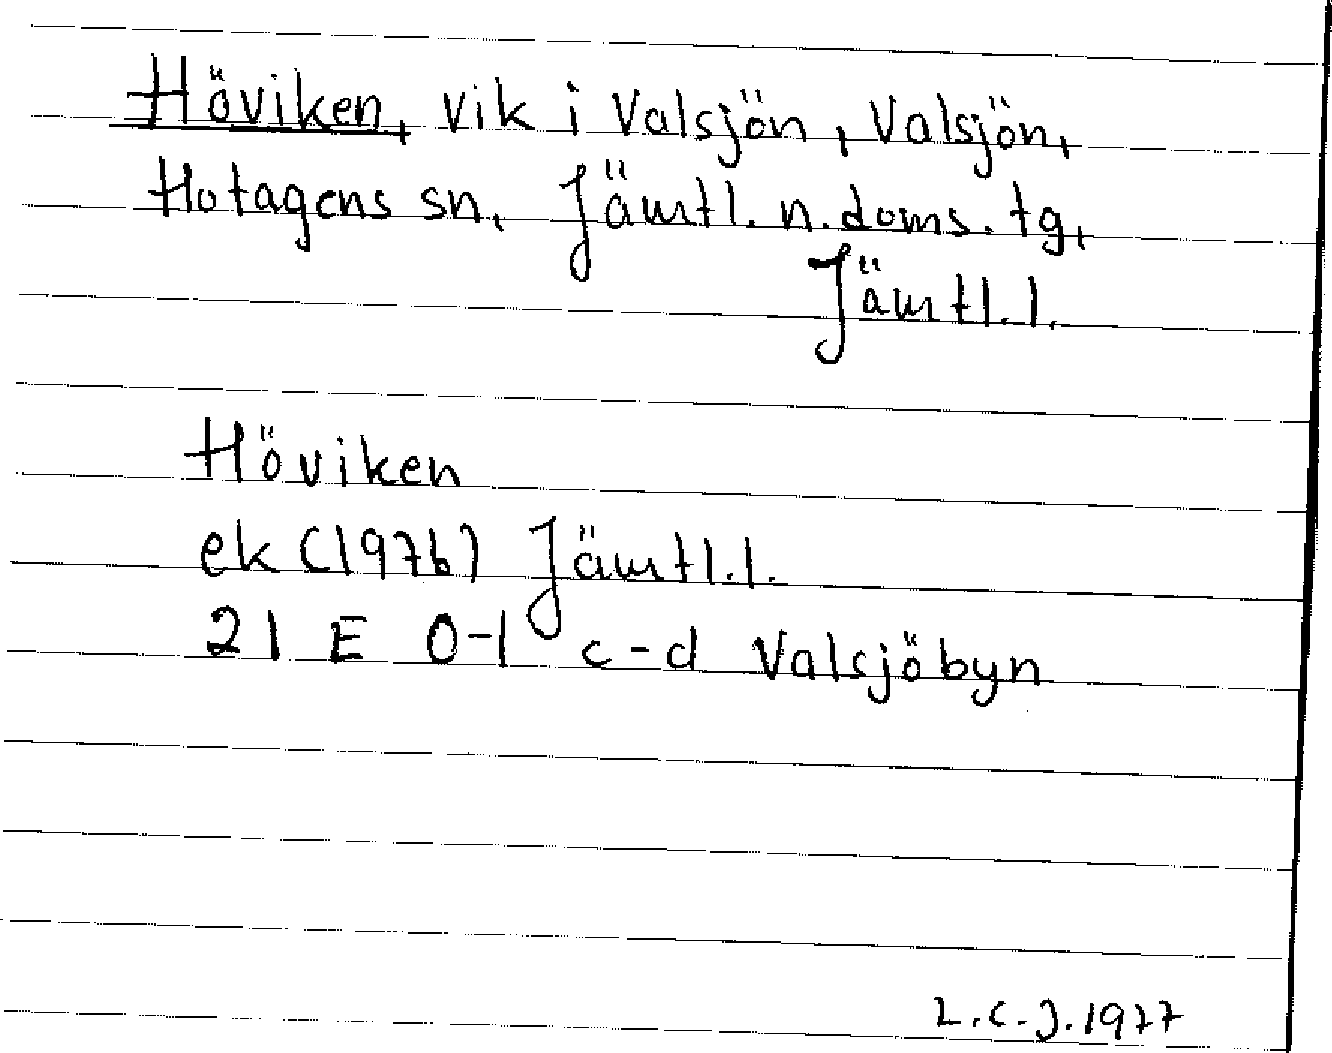 Höviken, vik i Valsjön, Valsjön,
Hotagens sn, Jämtl. n. doms. tg,
Jämtl. l.
Höviken
ek (1976) Jämtl. l.
21 E 0-1 c-d Valsjöbyn
L.C.J. 1977